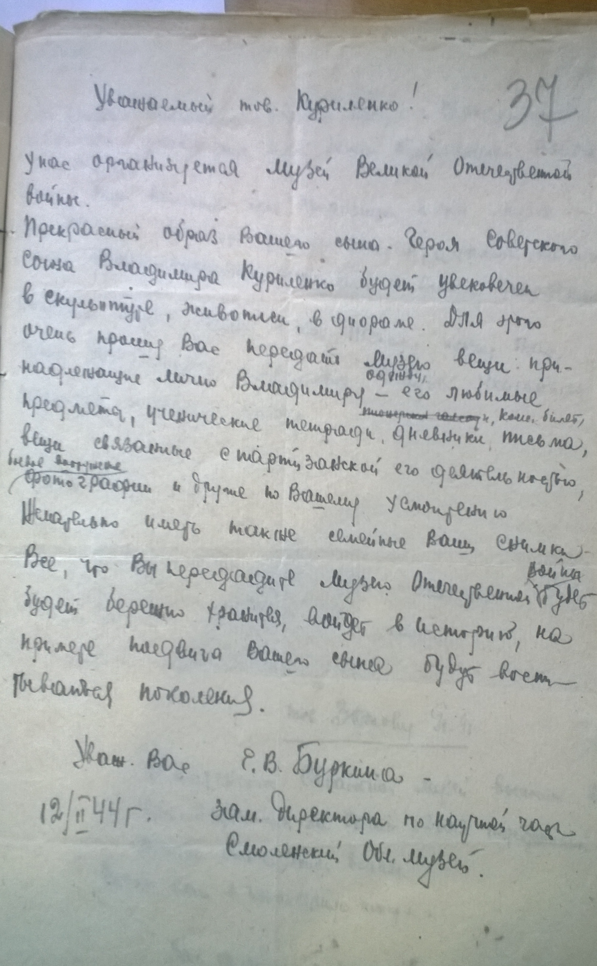 37
Уважаемый тов. Куриленко!
У нас организуется Музей Великой Отечественной
войны.
Прекрасный образ Вашего сына. Героя Советского
Союза Владимира Куриленко будет увековечен
в скульптуре, живописи, в диораме. Для этого
очень прошу Вас передать Музею вещи при-
надлежащие лично Владимиру – его любимые
предмета, ученические тетради, дневники, письма,
комс. билет,
вещи связанные с партизанской его деятельностью,
фотографии и другие по Вашему усмотрению
Желательно иметь также семейные Ваши снимки.
Все, что Вы передадите Музею Отечественной войны будет
будет бережно храниться, войдет в историю, на
примере подвига Вашего сына будут воспи-
тываться поколения.
Уваж. Вас Е.В. Буркина –
12/II 44 г. зам. директора по научной части
Смоленский Обл. музей.